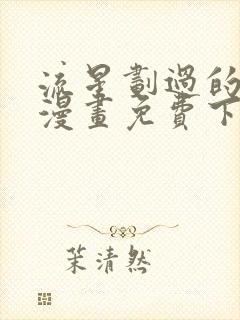 流星劃過的
漫畫免費下
茉清然